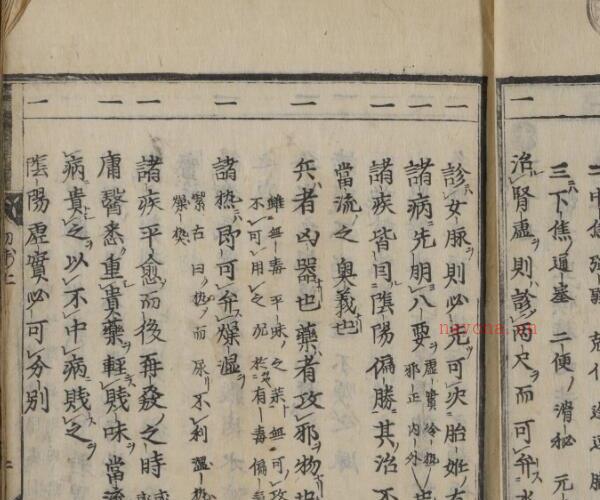 三下焦ノ通塞 二便ノ滑秘 元
一 治腎虚則診兩尺而可弁水
一 診女脉則必先可决胎姙有
一 諸病先明八要 虚實冷熱 邪正内外
一 諸疾皆因陰陽偏勝其治不
當流之奥義也
一 兵者凶器也藥者攻邪物也
雖無毒平味之藥無可攻
不可用之況於有毒偏
一 諸热即可弁燥湿
緊右曰热而尿不利湿热
燥热
一 諸疾平愈而後再發之時
一 庸醫悉重貴藥輕賤味當流
病貴之以不中病賤之
一 陰陽虚實必可分別